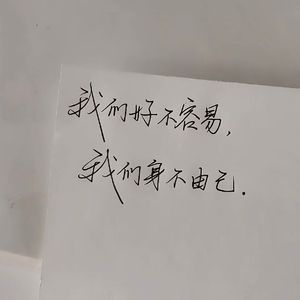 我们好不容易,
我们身不由己.